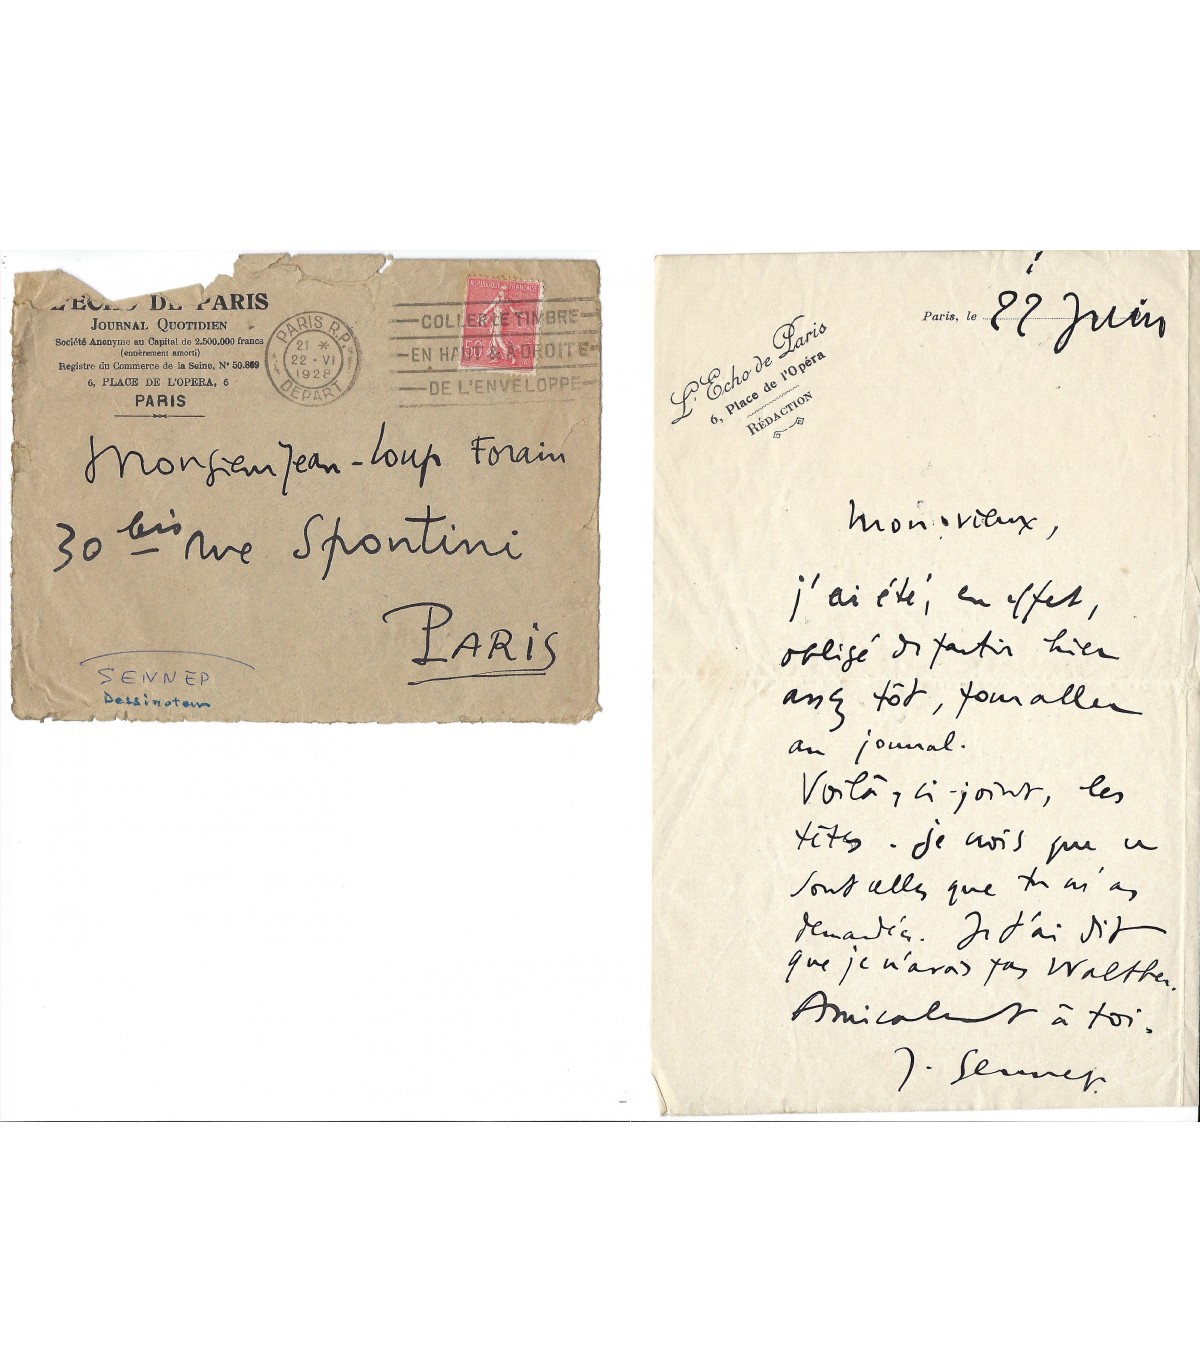 L'ECHO DE PARIS
JOURNAL QUOTIDIEN
Société Anonyme au Capital de 2.500.000 francs
(entièrement amorti)
Registre du Commerce de la Seine, N° 50.869
6, PLACE DE L'OPERA, 6
PARIS
PARIS R.P.
21 *
22 - VI
1928
DEPART
REPUBLIQUE FRANÇAISE
50c
COLLER LE TIMBRE
EN HAUT & A DROITE
DE L'ENVELOPPE
Monsieur Jean-Loup Forain
30 bis rue Spontini
PARIS
SENNEP
Dessinateur
L'Echo de Paris
6, Place de l'Opéra
RÉDACTION
Paris, le 22 Juin
Mon vieux,
j'ai été, en effet,
obligé de partir hier
assez tôt, pour aller
au journal.
Voilà, ci-joint, les
têtes. Je crois que ce
sont celles que tu m'as
demandées. Je t'ai dit
que je n'avais pas Walther.
Amicalement à toi.
J. Sennep.